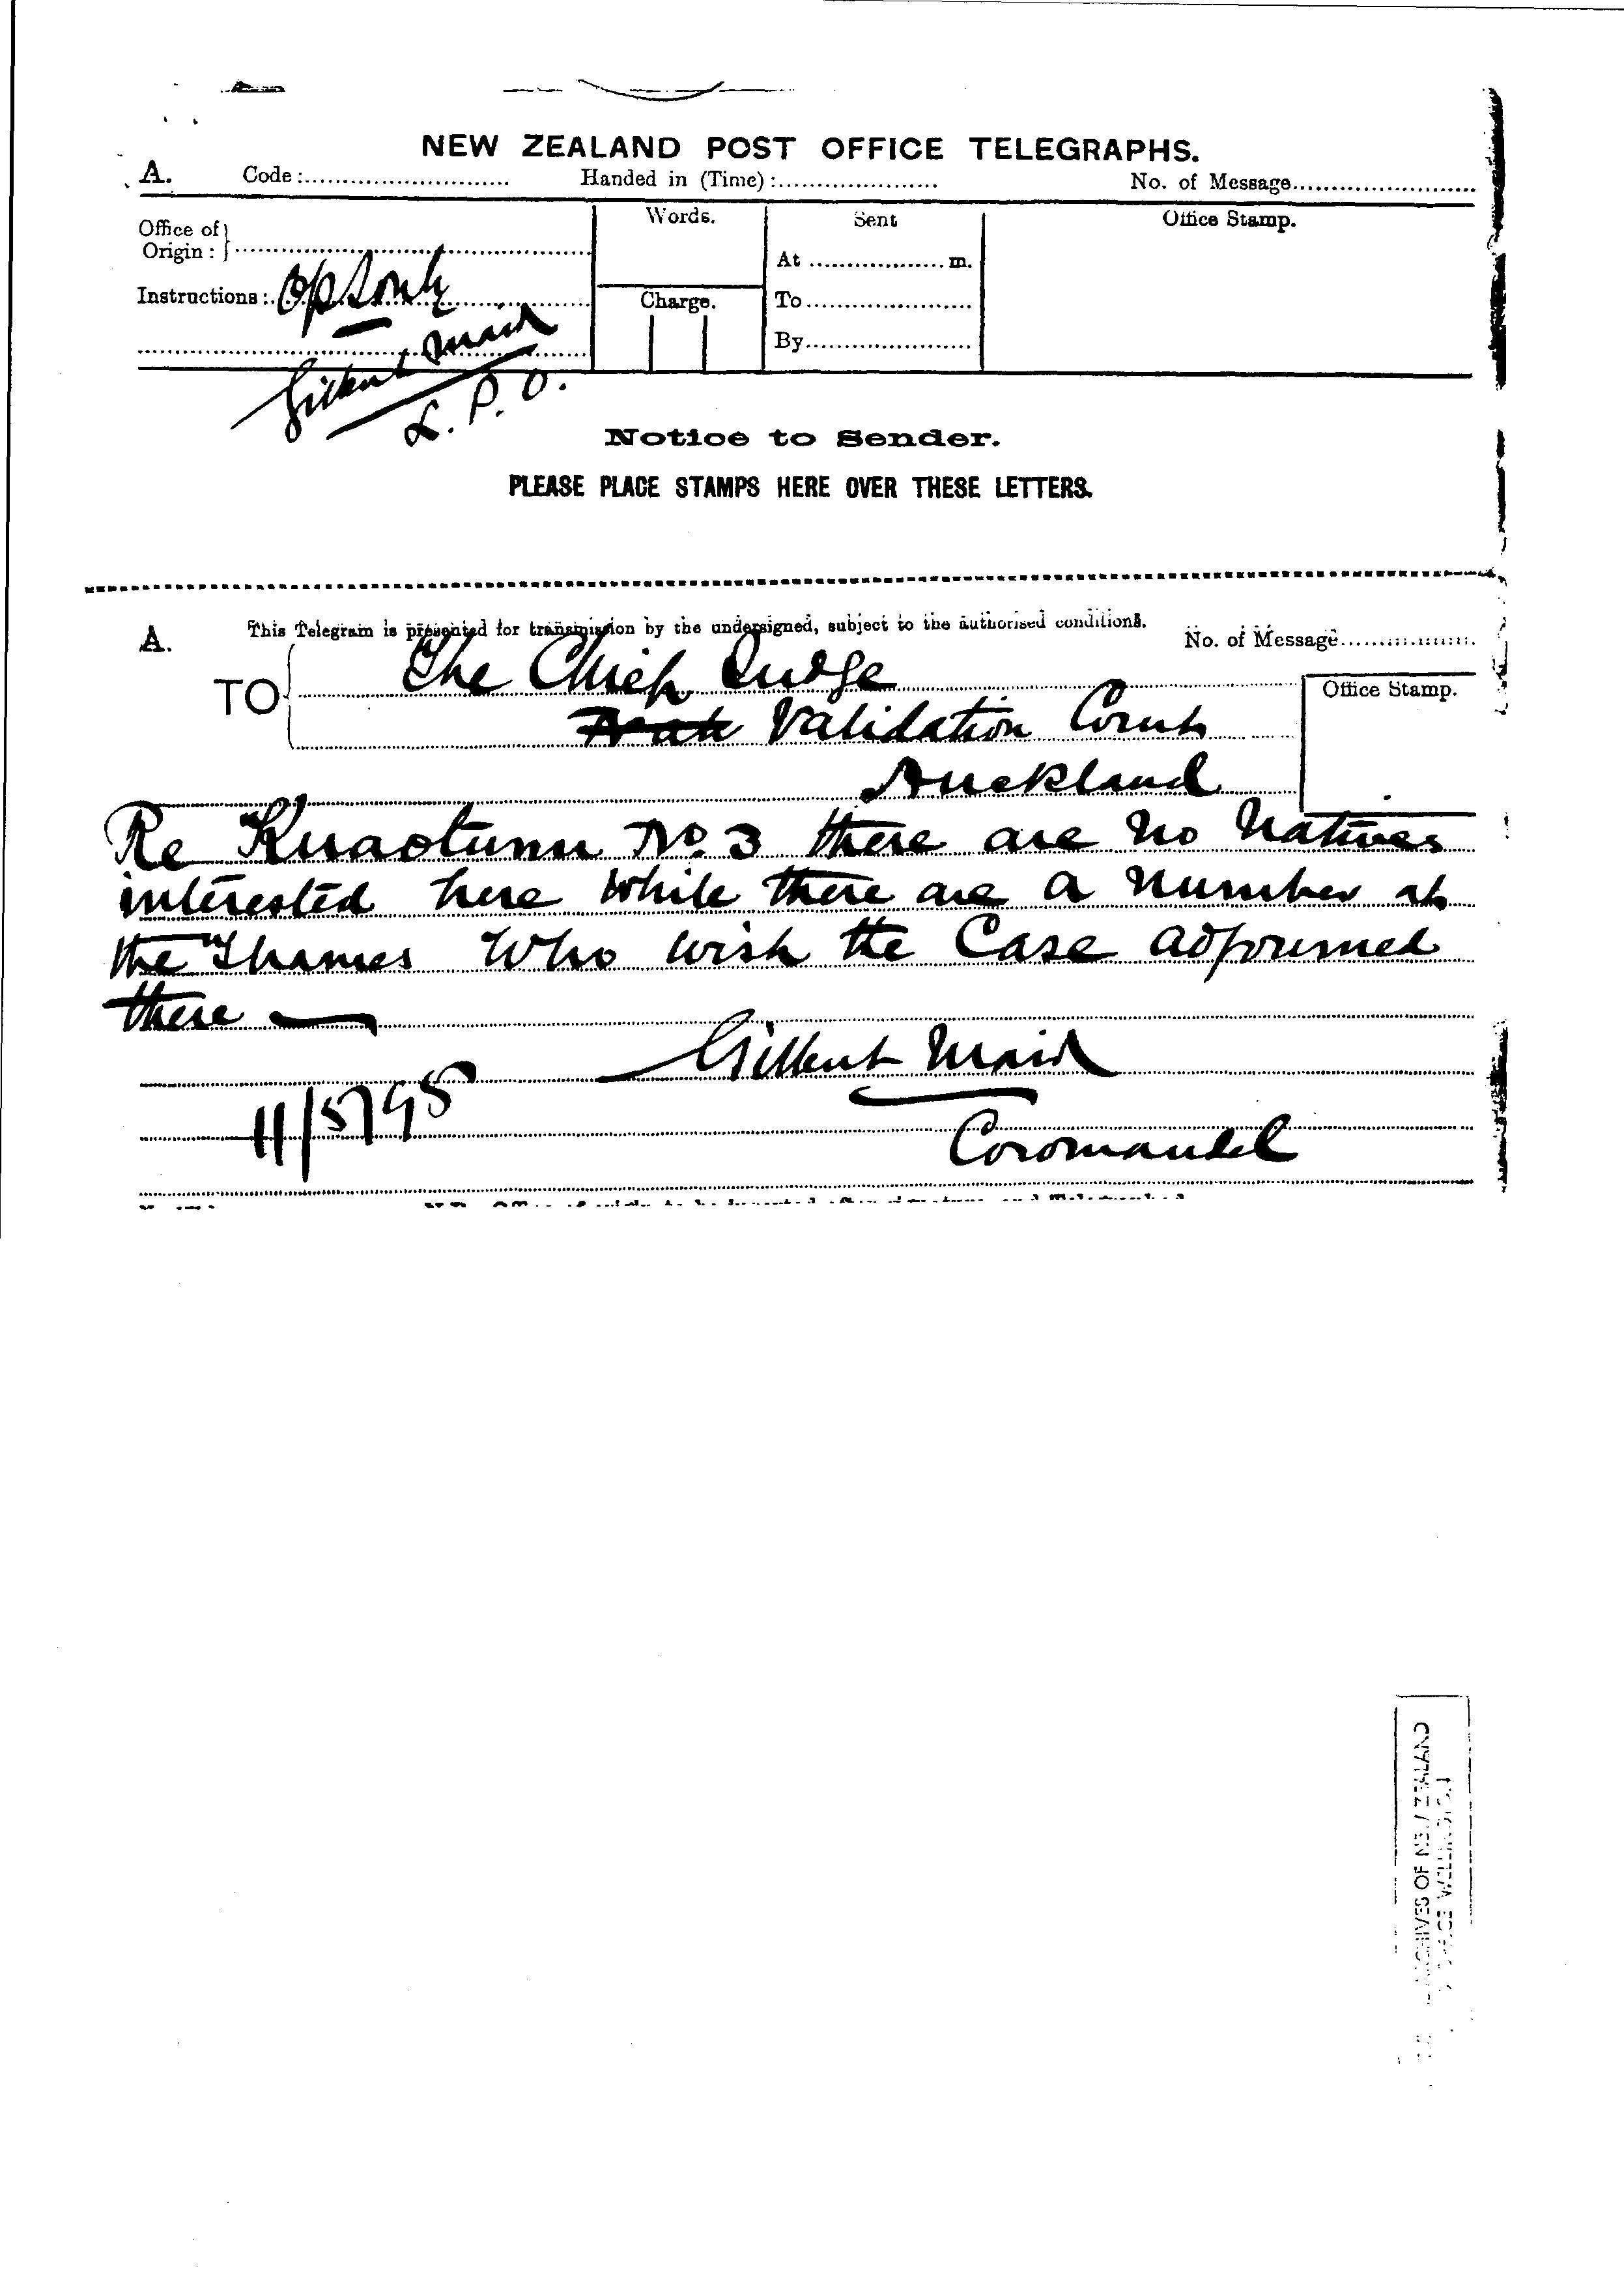 NEW ZEALAND POST OFFICE TELEGRAPHS.
A. Code:.......... Handed in (Time):.......... No. of Message..........
Office of Origin:
Words.
Sent
Office Stamp.
At .......... m.
Instructions:
Charge.
To..........
By..........
Gilbert Mair
L. P. O.
Notice to Sender.
PLEASE PLACE STAMPS HERE OVER THESE LETTERS.
A. This Telegram is presented for transmission by the undersigned, subject to the authorised conditions. No. of Message..........
TO The Chief Judge
Office Stamp.
Validation Court
Auckland
Re Kuaotunu No. 3 there are no Natives
interested here while there are a number at
the Thames who wish the Case adjourned
there —
Gilbert Mair
11/5/95
Coromandel
ARCHIVES OF NEW ZEALAND